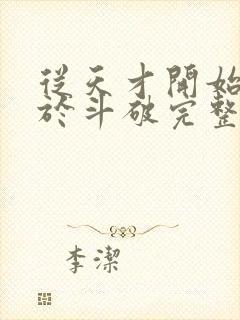 從天才開始
於斗破完整
李潔